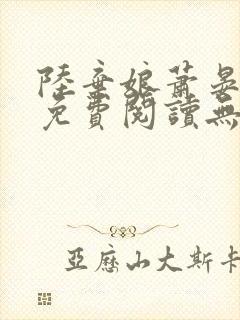 陸棄娘蕭晏
免費閱讀無
亞歷山大斯卡